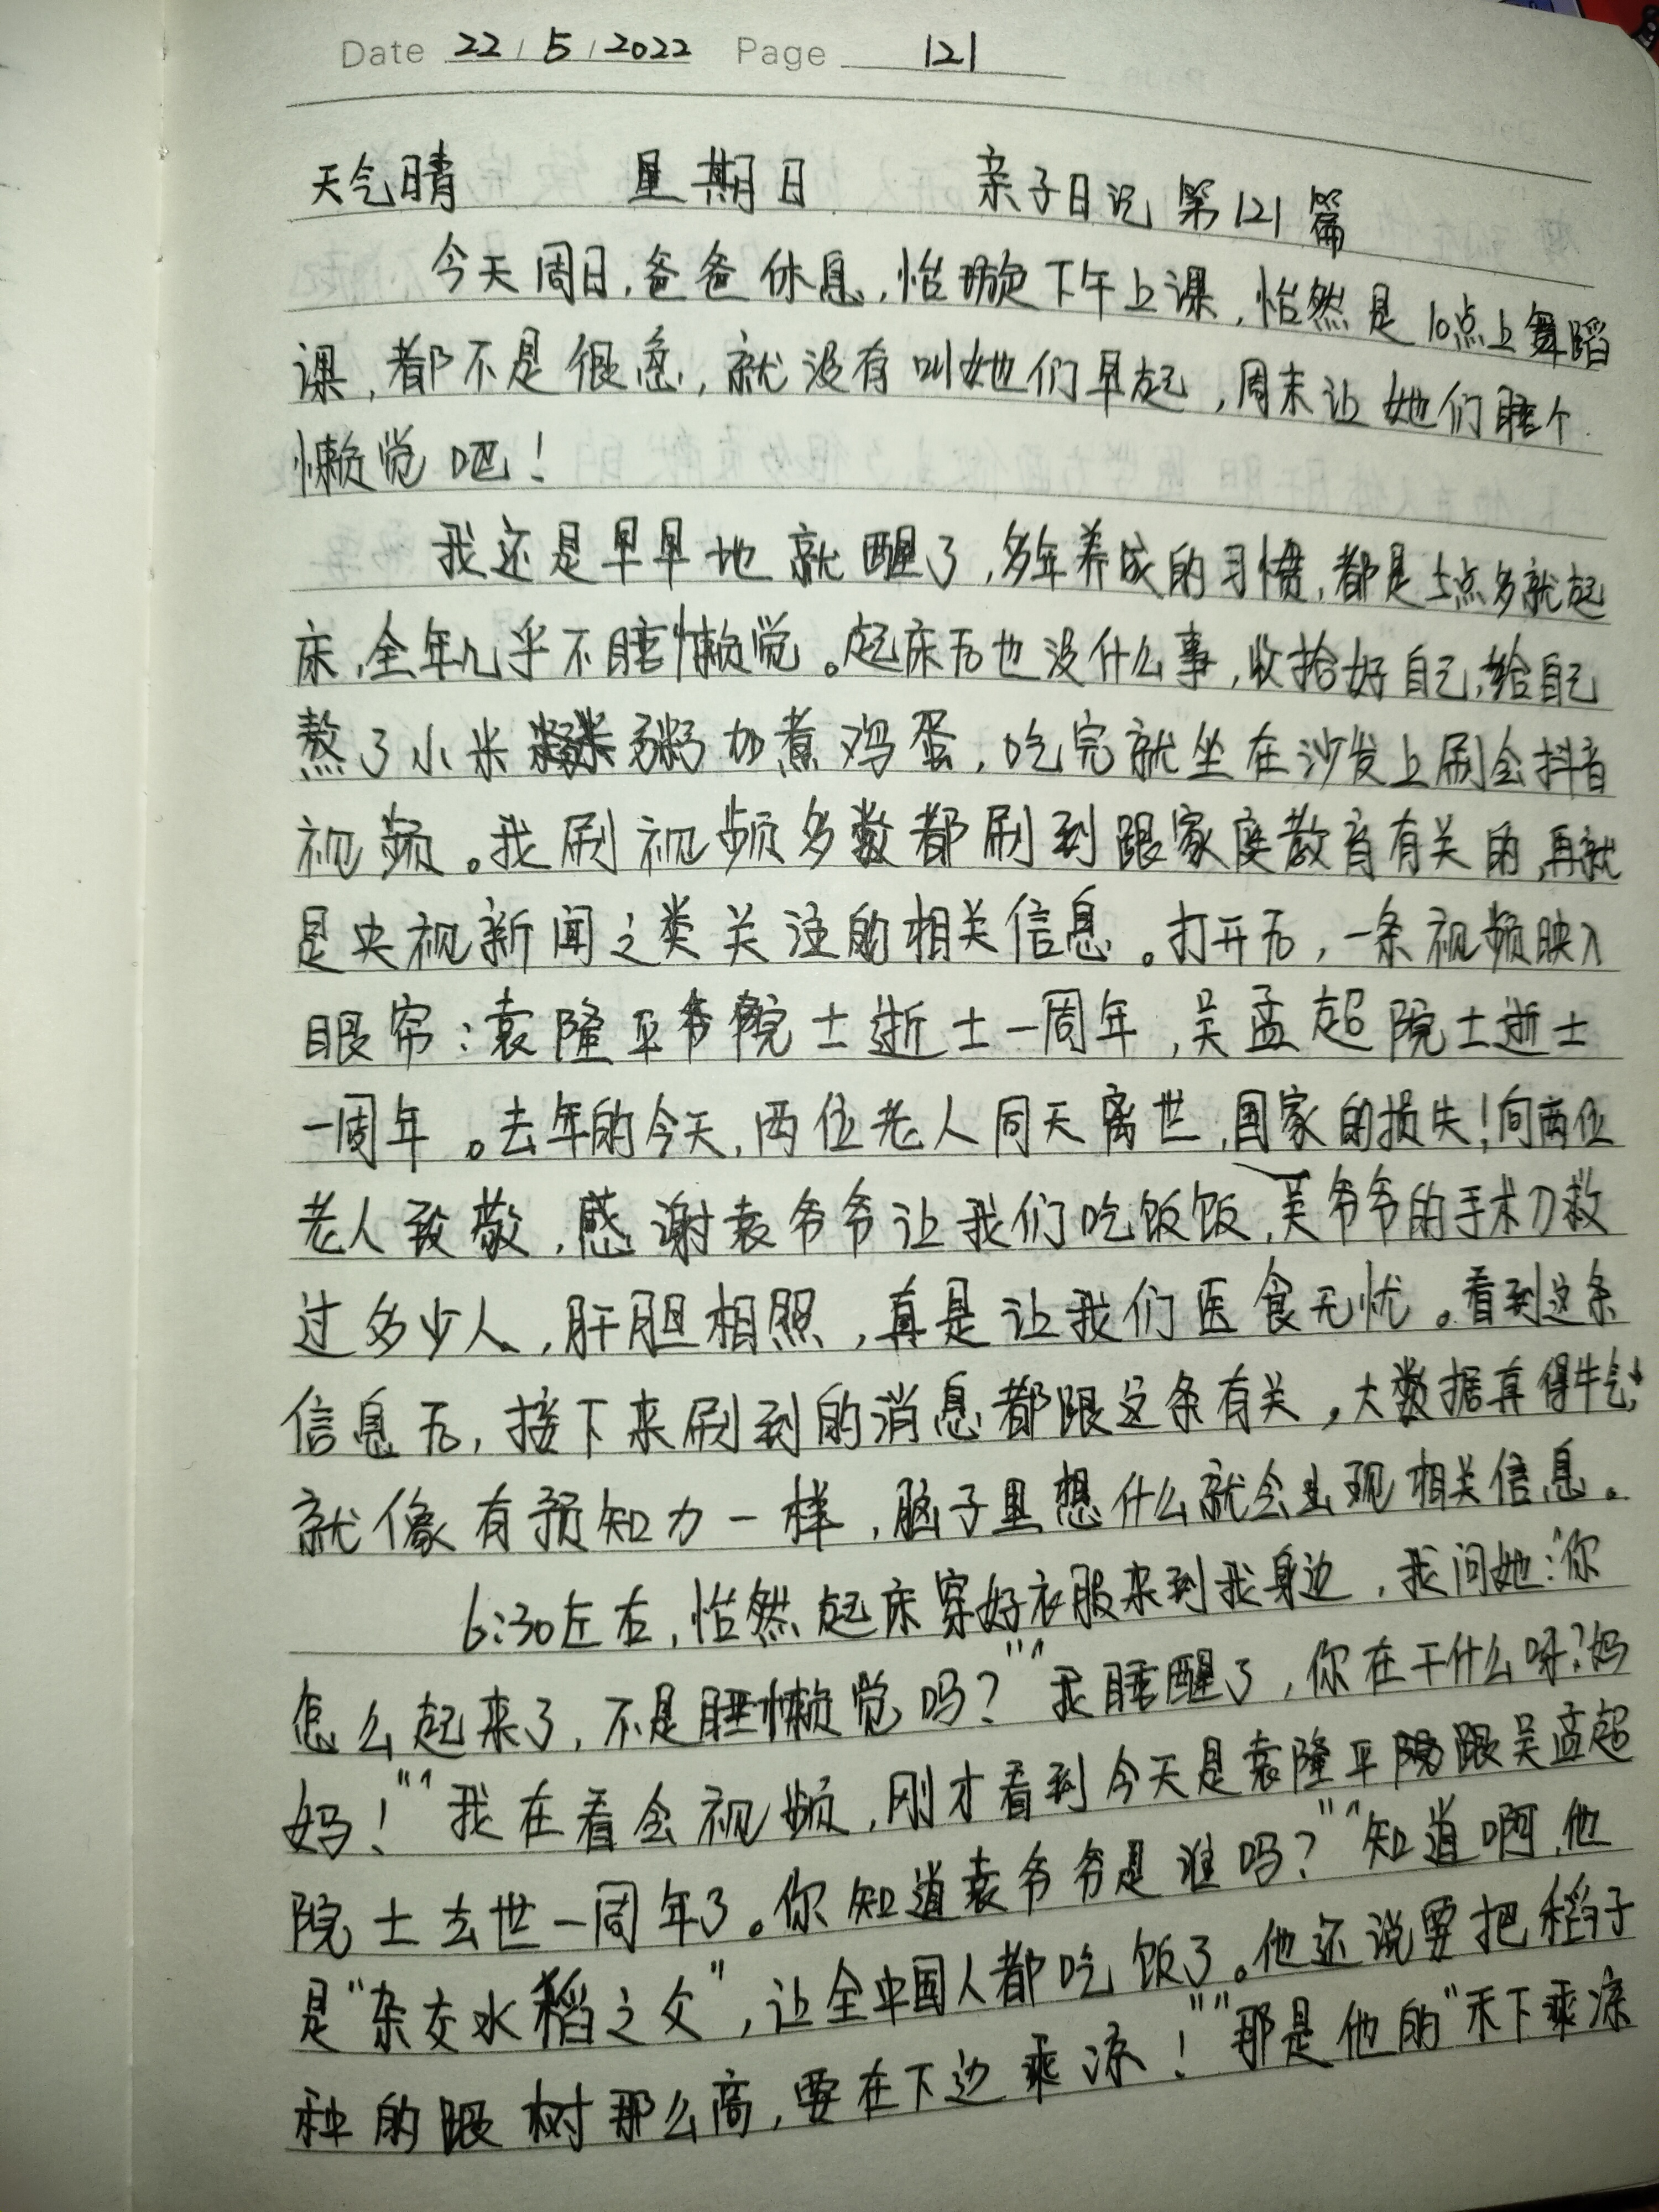 Date 22/5/2022 Page 121
天气晴 星期日 亲子日记第121篇
今天周日,爸爸休息,怡璇下午上课,怡然是10点上舞蹈
课,都不是很急,就没有叫她们早起,周末让她们睡个
懒觉吧!
我还是早早地就醒了,多年养成的习惯,都是5点多就起
床,全年几乎不睡懒觉。起床后也没什么事,收拾好自己,给自己
熬了小米粥加煮鸡蛋,吃完就坐在沙发上刷会抖音
视频。我刷视频多数都刷到跟家庭教育有关的,再就
是央视新闻之类关注的相关信息。打开后,一条视频映入
眼帘:袁隆平院士逝士一周年,吴孟超院士逝士
一周年。去年的今天,两位老人同天离世,国家的损失!向两位
老人致敬,感谢袁爷爷让我们吃饭饭,吴爷爷的手术刀救
过多少人,肝胆相照,真是让我们医食无忧。看到这条
信息后,接下来刷到的消息都跟这条有关,大数据真得牛气,
就像有预知力一样,脑子里想什么就会出现相关信息。
6:30左右,怡然起床穿好衣服来到我身边,我问她:“你
怎么起来了,不是睡懒觉吗?”“我睡醒了,你在干什么呀?妈
妈!”“我在看会视频,刚才看到今天是袁隆平院跟吴孟超
院士去世一周年了。你知道袁爷爷是谁吗?”“知道啊,他
是“杂交水稻之父”,让全中国人都吃饭了。他还说要把稻子
种的跟树那么高,要在下边乘凉!”“那是他的“禾下乘凉